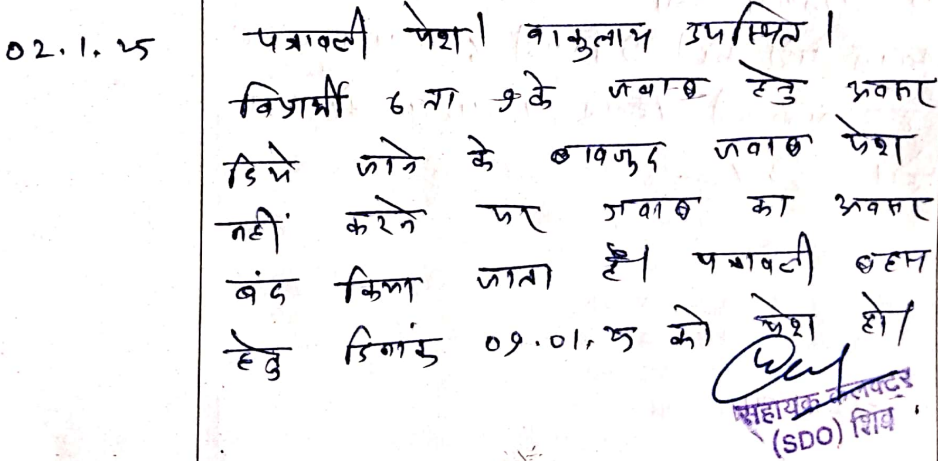 02.1.25 पत्रावली पेश। वाकुलाय उपस्थित।
विप्रार्थी 6 ता 9 के जवाब हेतु अवसर
दिये जाने के बावजूद जवाब पेश
नहीं करने पर जवाब का अवसर
बंद किया जाता है। पत्रावली बहस
हेतु दिनांक 09.01.25 को पेश हो।
सहायक कलक्टर
(SDO) शिव